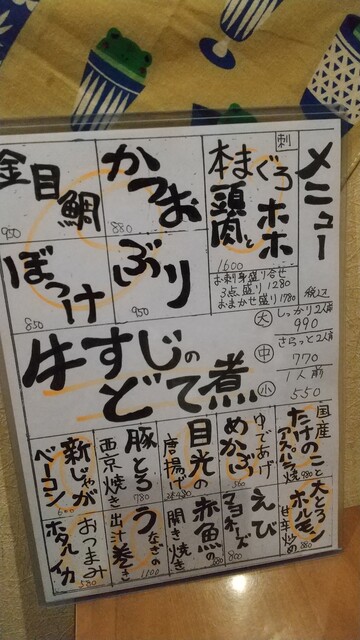 メニュー
税込
刺
本まぐろ
頭肉とホホ
1600
かつお
880
金目鯛
950
ぶり
950
ぼっけ
850
お刺身盛り合せ
3点盛り 1280
おまかせ盛り 1780
牛すじの
どて煮
大 しっかり2人前
990
中 さらっと2人前
770
小 1人前
550
国産
たけのこ
980
ゆであげ
めかぶ
目光の
唐揚げ
豚とろ
西京焼き
780
新じゃが
ベーコン
大トラ
ホルモン
甘辛炒め
880
えび
マヨネーズ
800
赤魚の
開き焼き
うなぎの
出汁巻き
1100
おつまみ
ホタルイカ
580